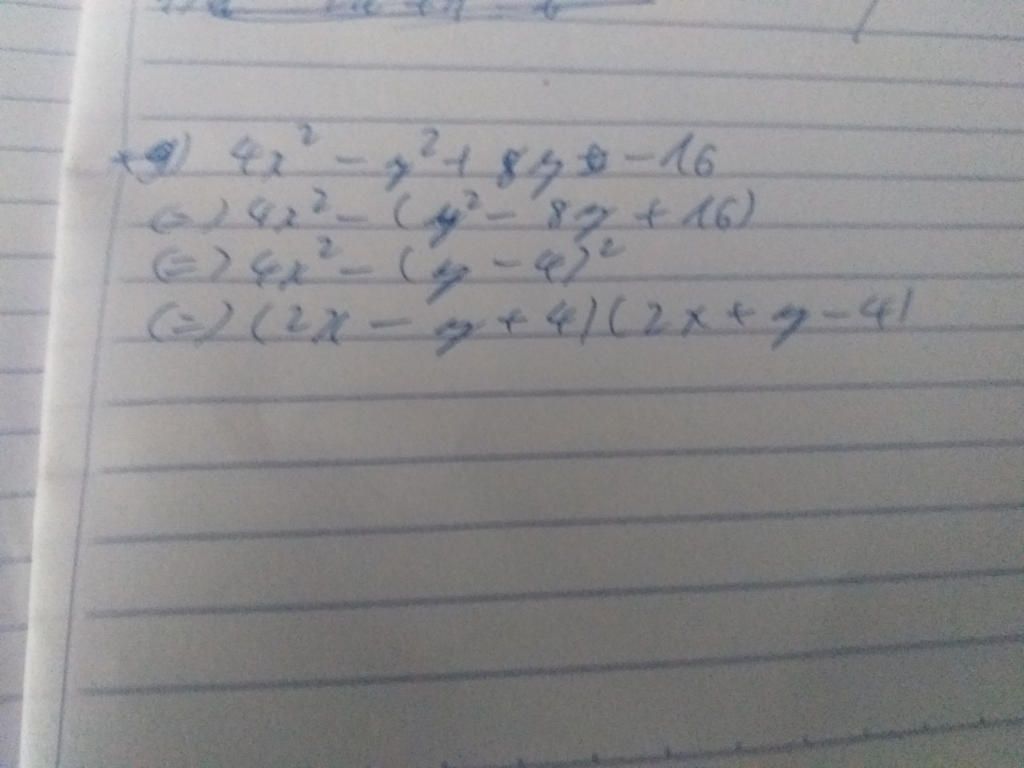 g) 4x² - y² + 8y - 16
(=) 4x² - (y² - 8y + 16)
(=) 4x² - (y - 4)²
(=) (2x - y + 4)(2x + y - 4)